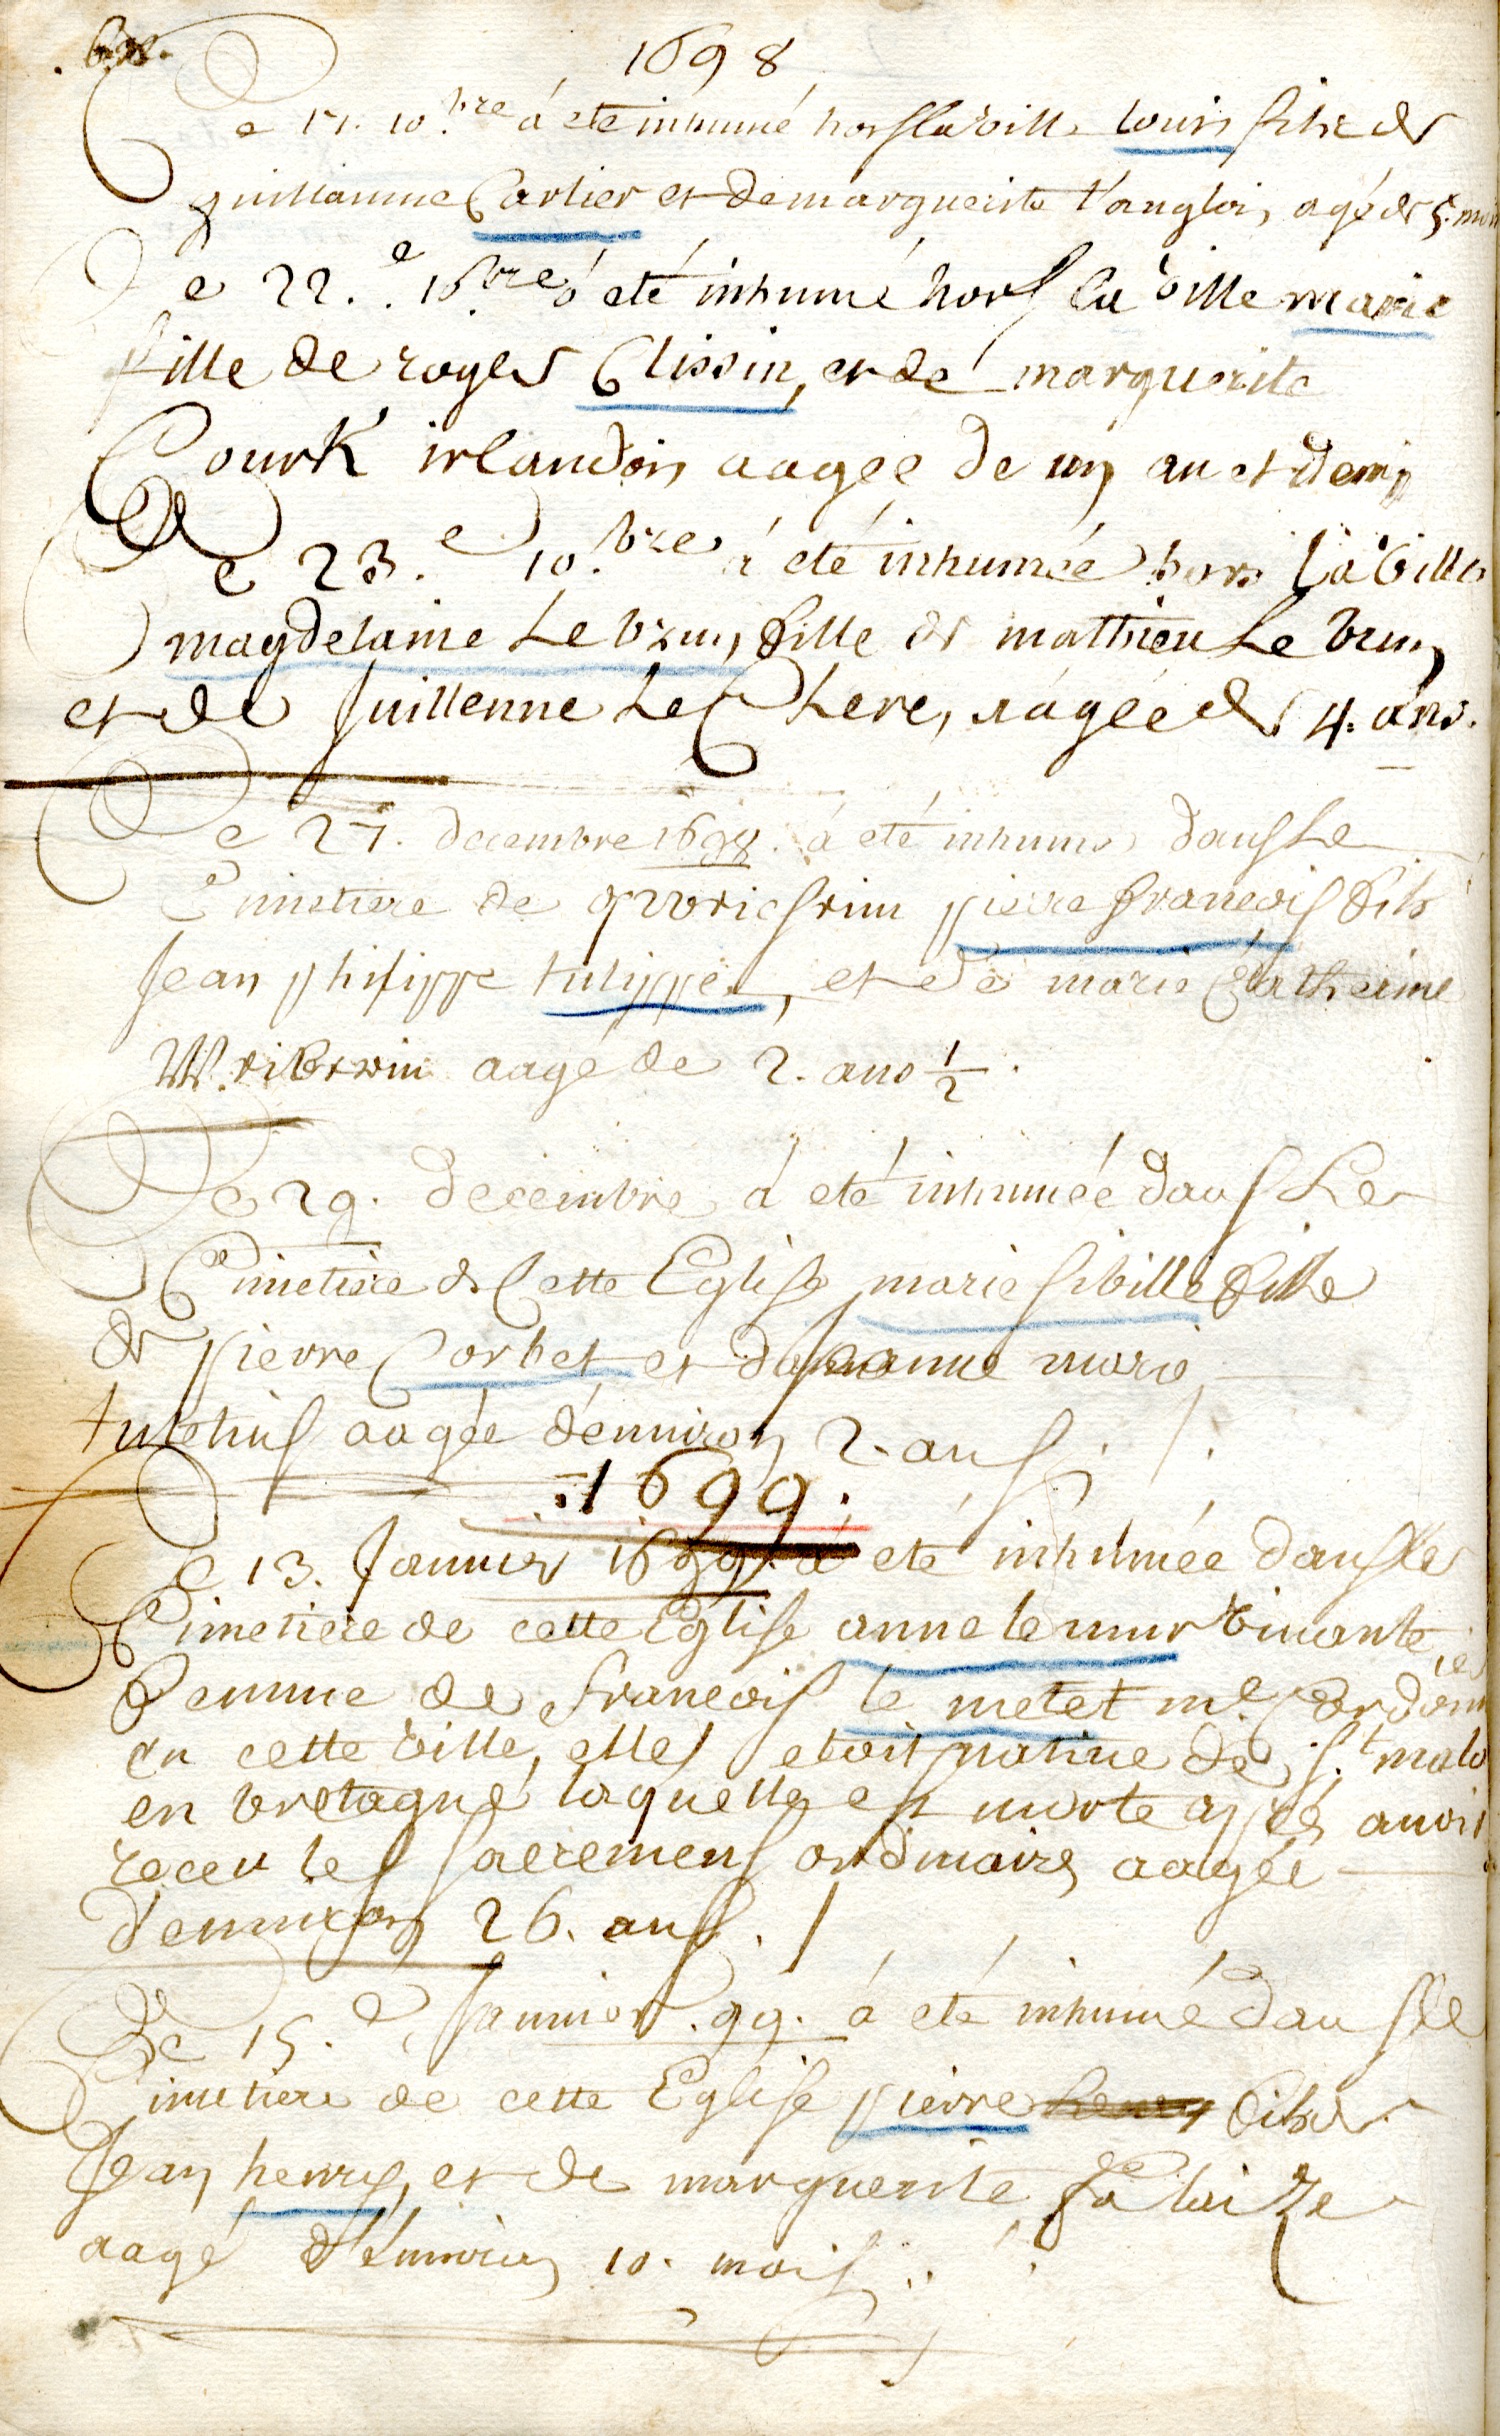 1698
Le 17. 10.bre á eté inhumé hors la ville louis fils de
guillaume Carlier et de marguerite l'anglois agé de 5. mois
Le 22.e 10bre á eté inhumé hors la ville marie
fille de roger Clissin, et de marguerite
Courk irlandois aagée de un an et demy
Le 23.e 10.bre á eté inhumée hors la ville
magdelaine Le brun, fille de mathieu Le brun,
et de Juillenne Le Clere, aágée de 4. ans.
Le 27. decembre 1698. á eté inhumé dans Le
Cimetiere de pierre francois fils
Jean philippe tulippe, et de marie Catherine
aagé de 2. ans 1/2.
Le 29. decembre á eté inhumée dans Le
Cimetiere de Cette Eglise marie sibille fille
de pierre Corbet et de anne marie
aagée d'environ 2. ans. /.
.1699.
Le 13. Januier 1699. á eté inhumée dans le
Cimetiere de cette Eglise anne le mur viuante
femme de francois le metet me. Cordonnier
en cette ville, elle etoit natiue de St. malo
en bretagne laquelle est morte apres auoir
receu les sacremens ordinaires aagée
d'enuiron 26. ans. /
Le 15.e Januier .99. á eté inhumé dans le
Cimetiere de cette Eglise pierre henry fils de
Jean henry, et de marguerite falaize
aagé d'Enuiron 10. mois..